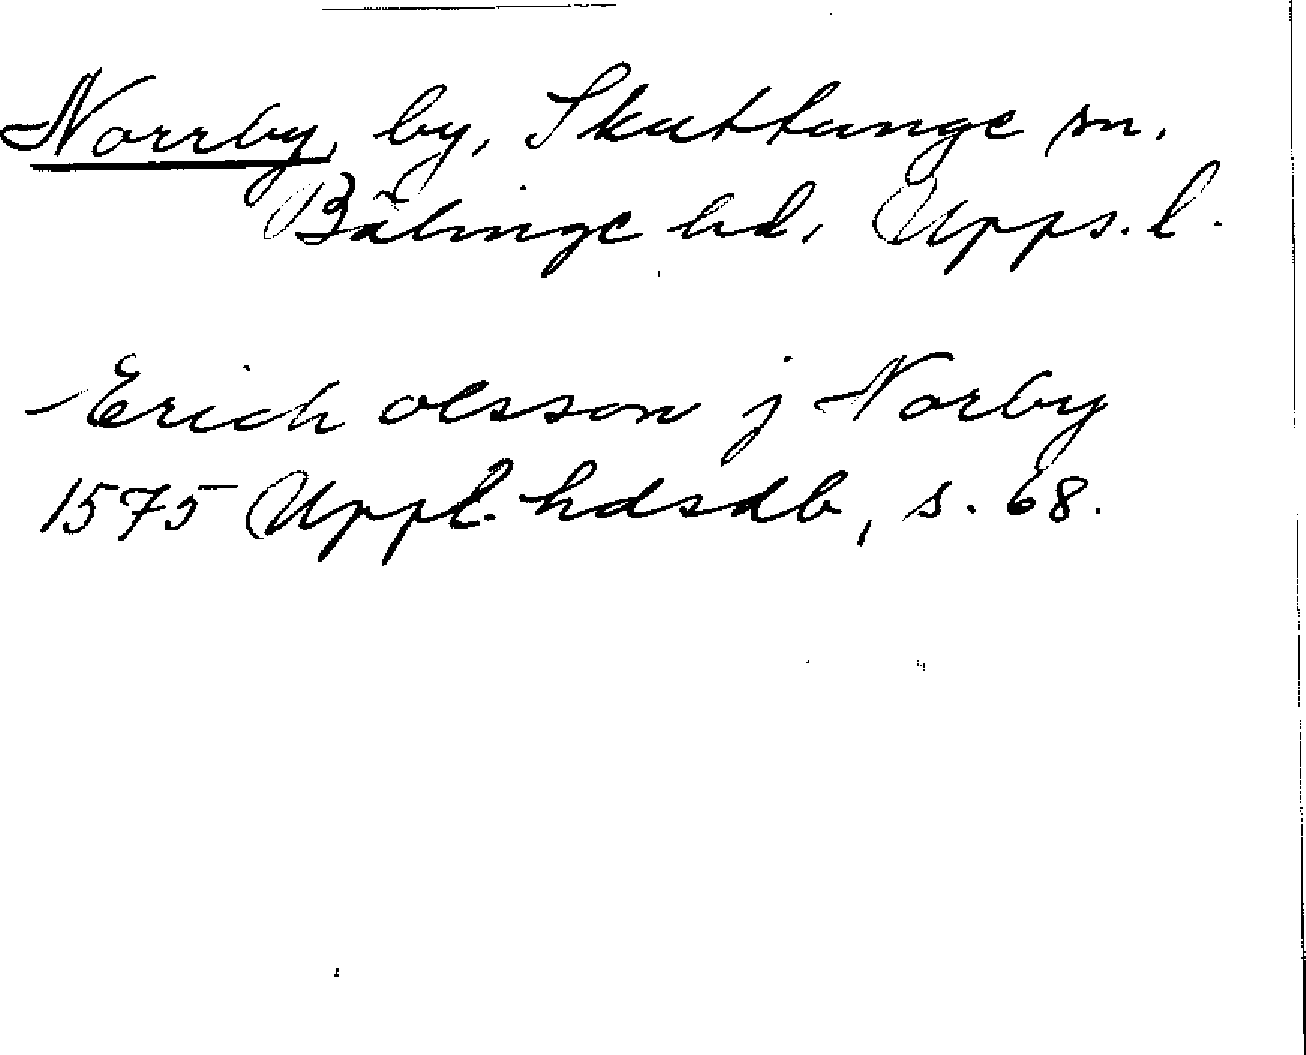 Norrby, by, Skuttunge sn.
Bälinge hd, Upps. l.
Erich olsson j Norby
1575 Uppl. hdsdb, s. 68.